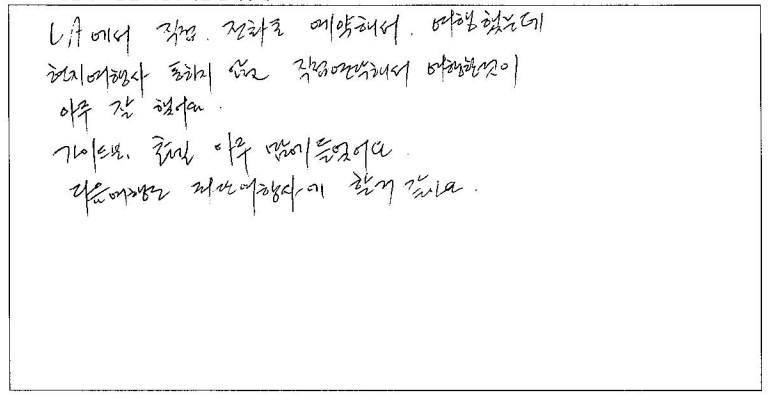 LA에서 직접. 전화로 예약해서. 여행했는데
현지여행사 통하지 않고 직접연락해서 여행한것이
아주 잘 했어요.
가이드분, 호텔 아주 맘에 들었어요.
다음여행도 귀사여행사에 할거 같아요.